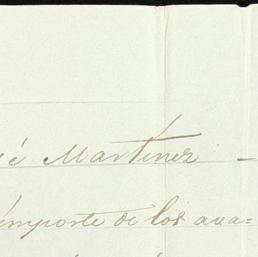 é Martinez —
importe de los ava=